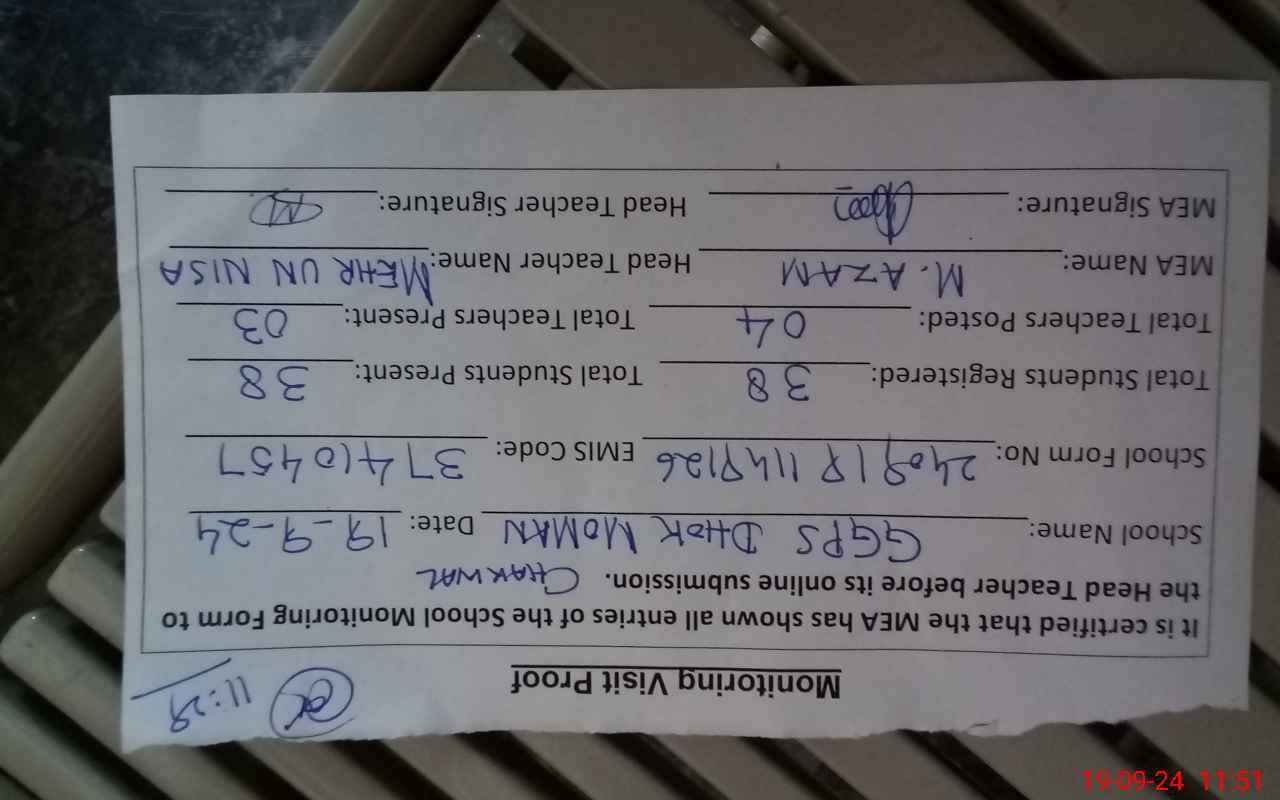 Monitoring Visit Proof
11:29
It is certified that the MEA has shown all entries of the School Monitoring Form to
the Head Teacher before its online submission. CHAKWAL
School Name: GGPS DHOK MOMAN Date: 19-9-24
School Form No: 2409191149126 EMIS Code: 37410457
Total Students Registered: 38 Total Students Present: 38
Total Teachers Posted: 04 Total Teachers Present: 03
MEA Name: M. AZAM Head Teacher Name: MEHR UN NISA
MEA Signature: Head Teacher Signature:
19-09-24 11:51